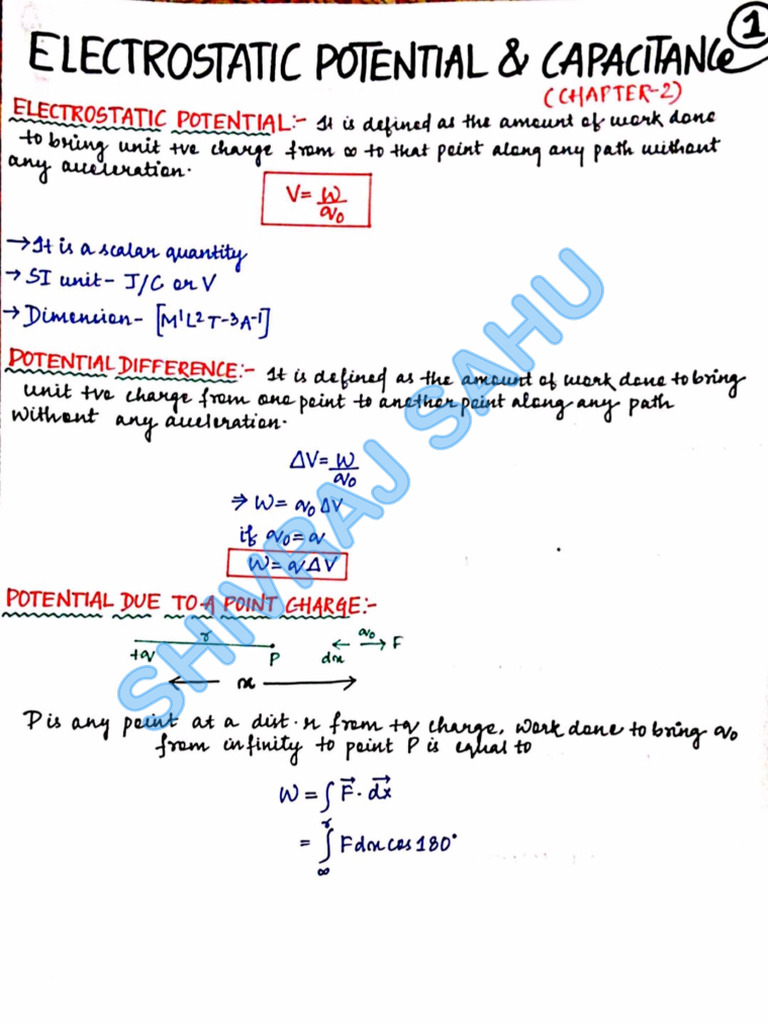 1
ELECTROSTATIC POTENTIAL & CAPACITANCE
(CHAPTER-2)
ELECTROSTATIC POTENTIAL:- It is defined as the amount of work done
to bring unit +ve charge from ∞ to that point along any path without
any acceleration.
V = W/q₀
→ It is a scalar quantity
→ SI unit - J/C or V
→ Dimension - [M¹L²T-³A-¹]
POTENTIAL DIFFERENCE:- It is defined as the amount of work done to bring
unit +ve charge from one point to another point along any path
without any acceleration.
ΔV = W/q₀
⇒ W = q₀ΔV
if q₀ = q
W = qΔV
POTENTIAL DUE TO A POINT CHARGE:-
r q₀ F
+q P dx
x
P is any point at a dist. r from +q charge. Work done to bring q₀
from infinity to point P is equal to
W = ∫F⃗ · dx⃗
= ∫∞^r Fdx cos180°
SHIVRAJ SAHU